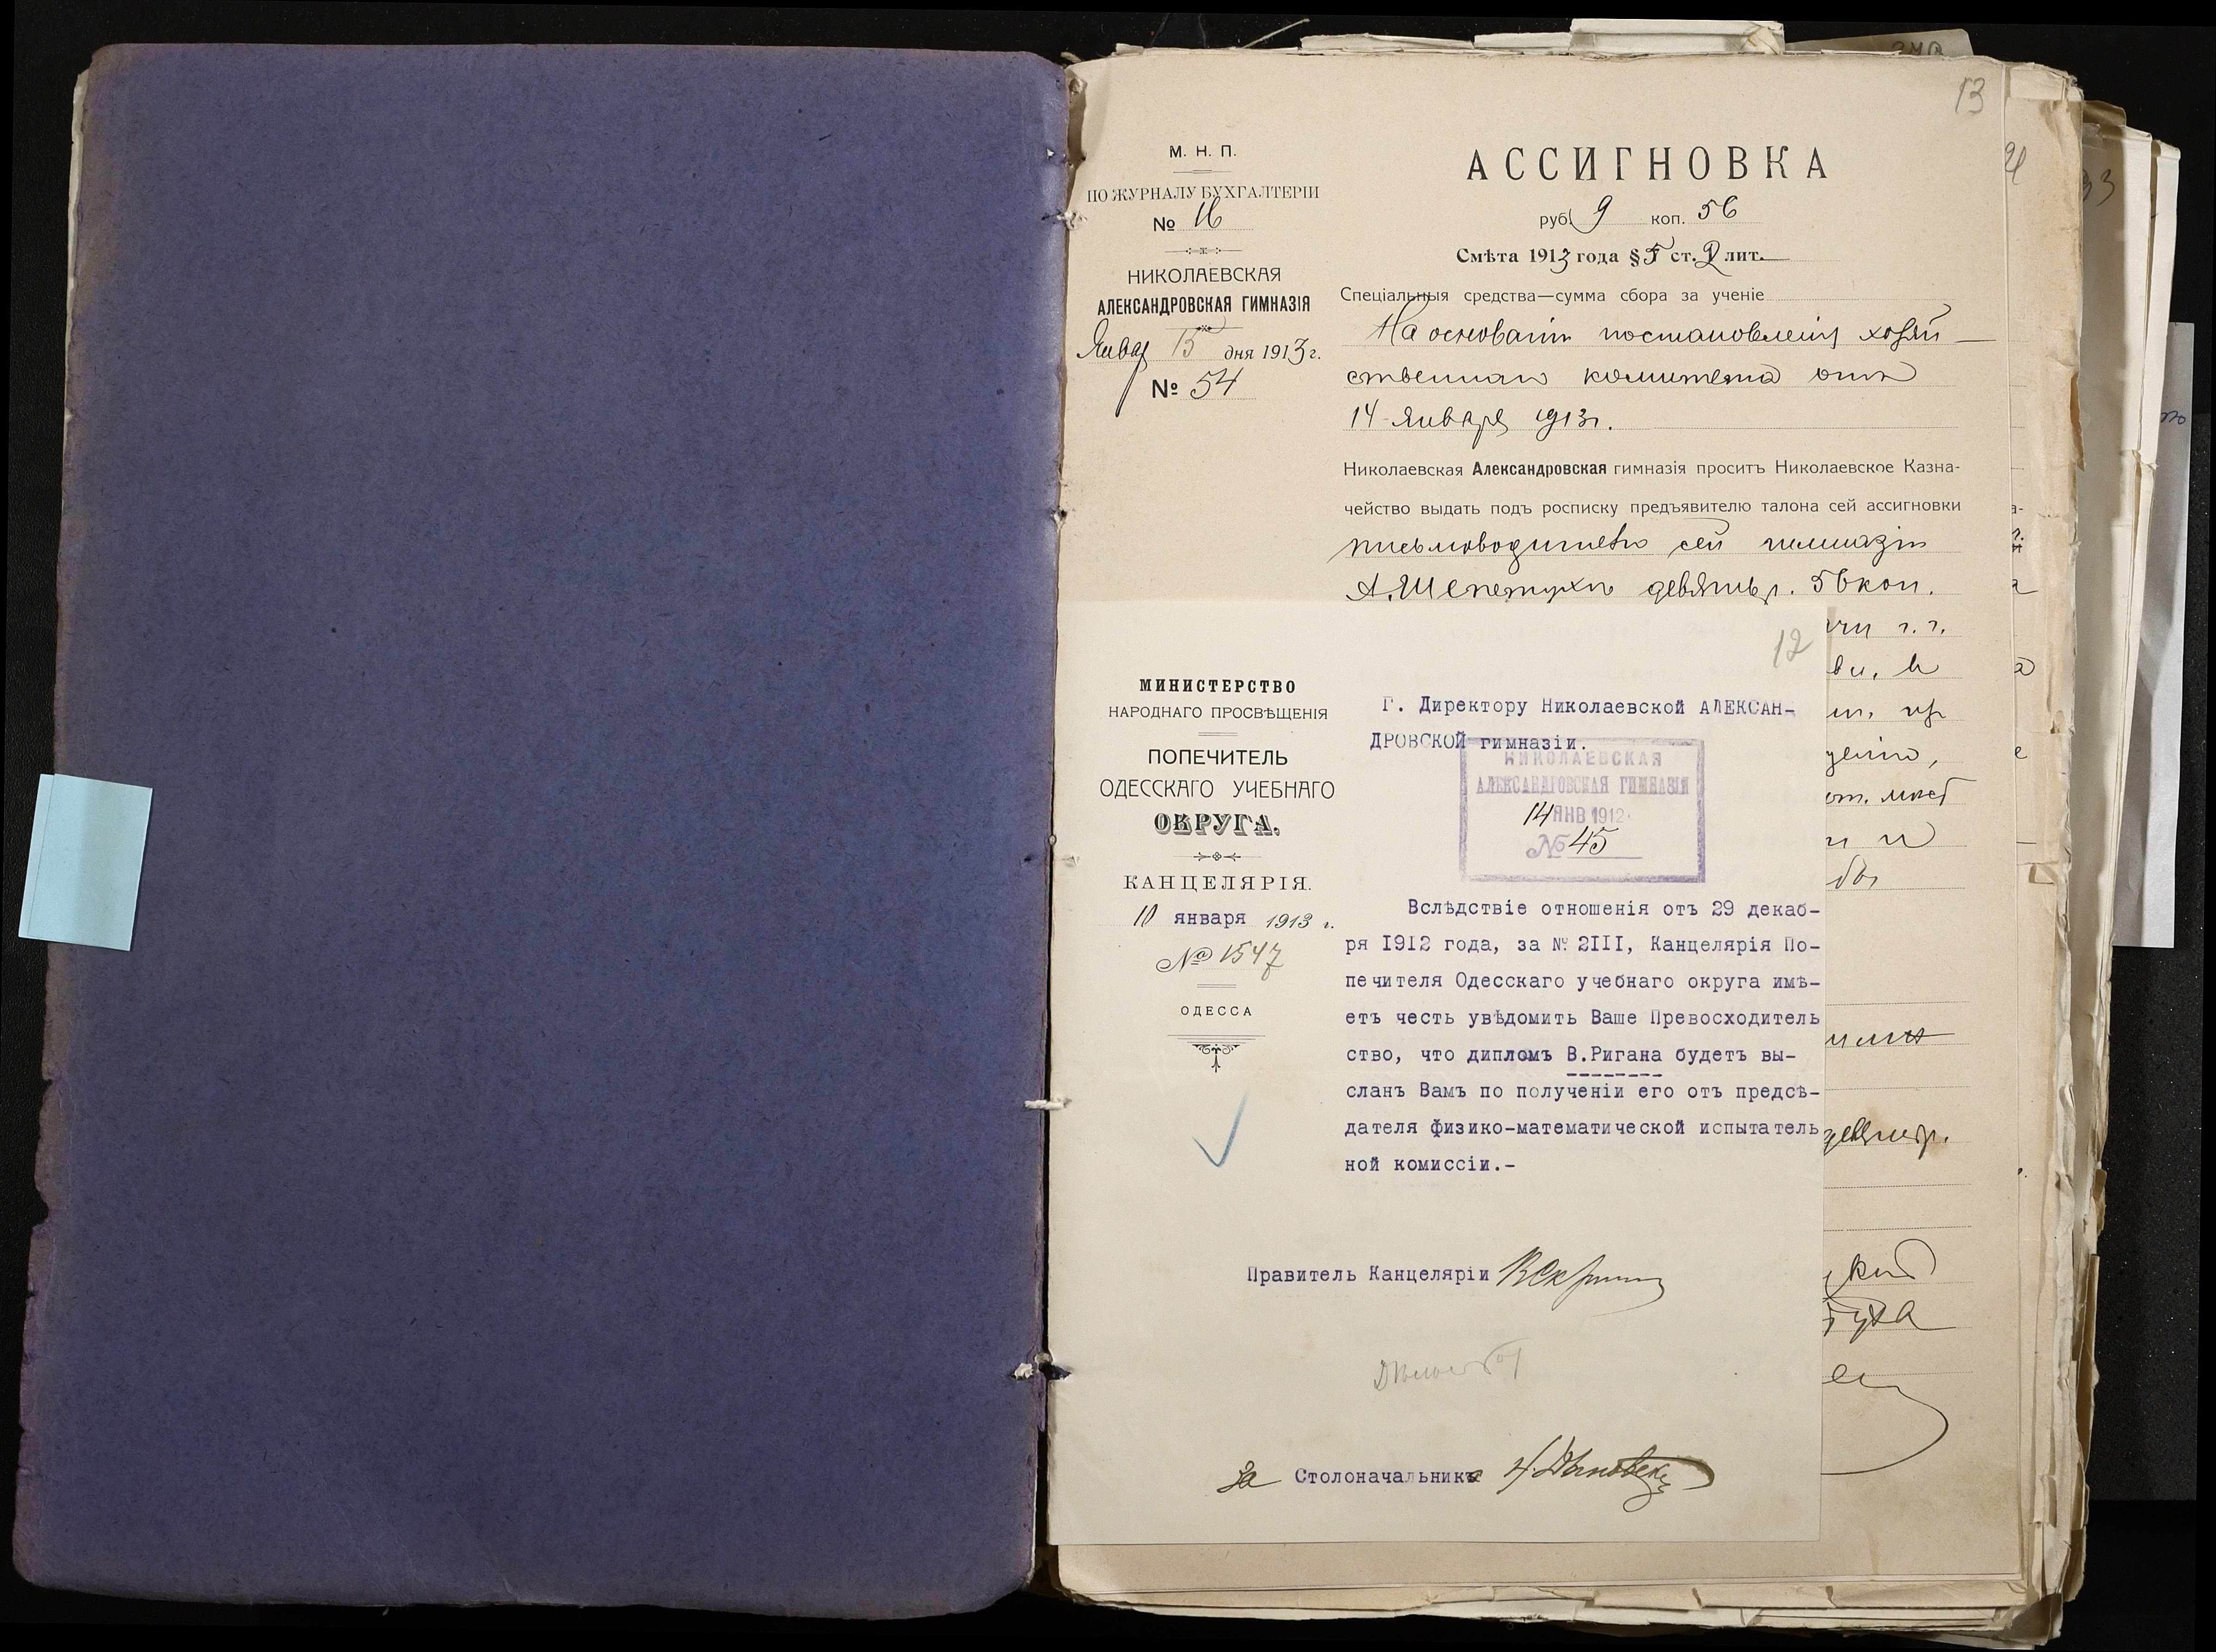 13
М. Н. П.
ПО ЖУРНАЛУ БУХГАЛТЕРІИ
№ 16
НИКОЛАЕВСКАЯ
АЛЕКСАНДРОВСКАЯ ГИМНАЗІЯ
Январ 15 дня 1913 г.
№ 54
АССИГНОВКА
руб. 9 коп. 56
Смѣта 1913 года § 5 ст. 2 лит.
Спеціальныя средства—сумма сбора за ученіе
На основаніи постановленія хозяй-
ственнаго комитета отъ
14 Января 1913 г.
Николаевская Александровская гимназія проситъ Николаевское Казна-
чейство выдать подъ росписку предъявителю талона сей ассигновки
письмоводителю сей гимназіи
А. Шепетухѣ девять р. 56 коп.
12
МИНИСТЕРСТВО
НАРОДНАГО ПРОСВѢЩЕНІЯ
ПОПЕЧИТЕЛЬ
ОДЕССКАГО УЧЕБНАГО
ОКРУГА.
КАНЦЕЛЯРІЯ.
10 января 1913 г.
№ 1547
ОДЕССА
Г. Директору Николаевской АЛЕКСАН-
ДРОВСКОЙ гимназіи.
НИКОЛАЕВСКАЯ
АЛЕКСАНДРОВСКАЯ ГИМНАЗІЯ
14 ЯНВ 1912
№ 45
Вслѣдствіе отношенія отъ 29 декаб-
ря I912 года, за № 2III, Канцелярія По-
печителя Одесскаго учебнаго округа имѣ-
етъ честь увѣдомить Ваше Превосходитель
ство, что дипломъ В.Ригана будетъ вы-
сланъ Вамъ по полученіи его отъ предсѣ-
дателя физико-математической испытатель
ной комиссіи.-
Правитель Канцеляріи
За Столоначальника